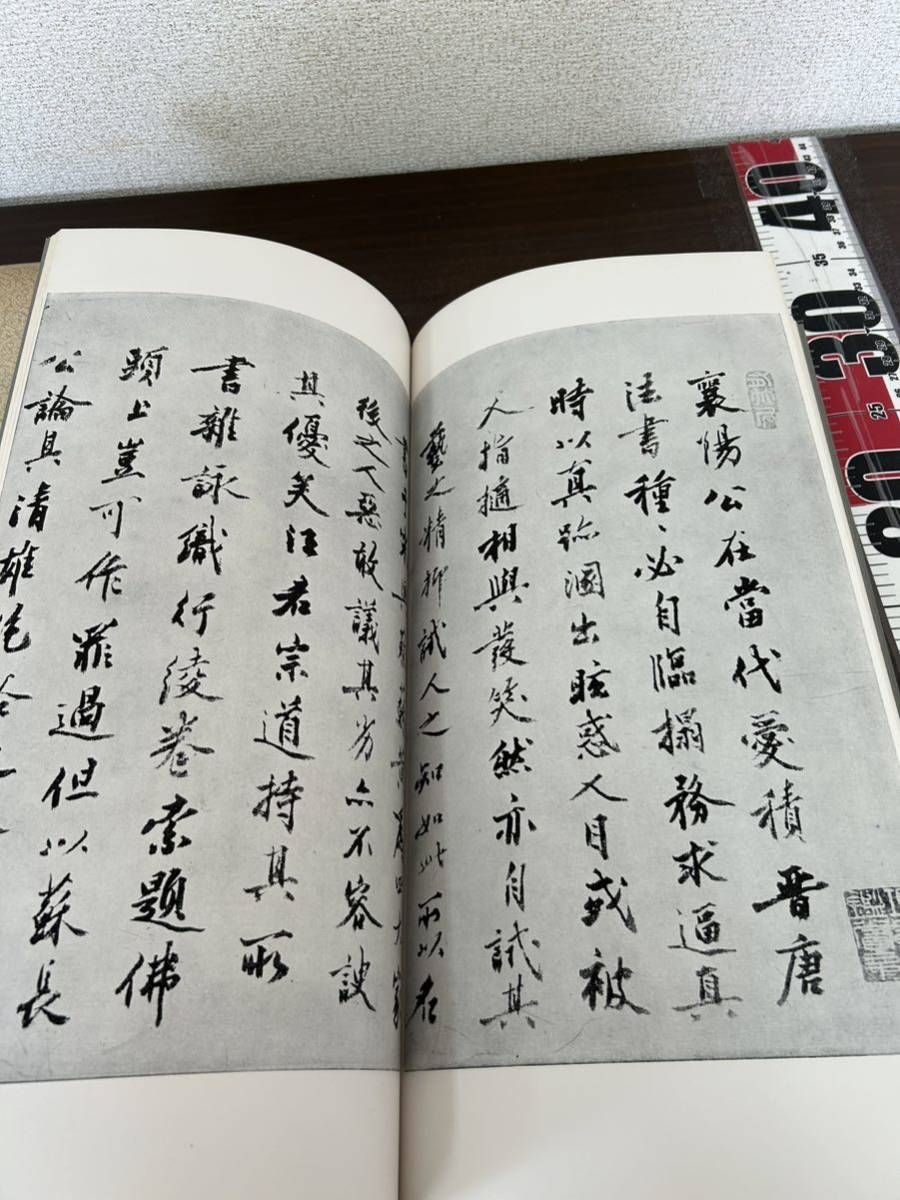 襄陽公在當代愛積晉唐
法書種〻必自臨搨務求逼真
時以真跡溷出眩惑人目或被
人指擿相與發笑然亦自試其
藝之精抑試人之知如此所以名
後之人惡敢議其劣亦不容諛
其優矣汪君宗道持其所
書雜詠織行綾卷索題佛
頭上豈可作罪過但以蘇長
公論其清雄絕
40
35
30
25
20